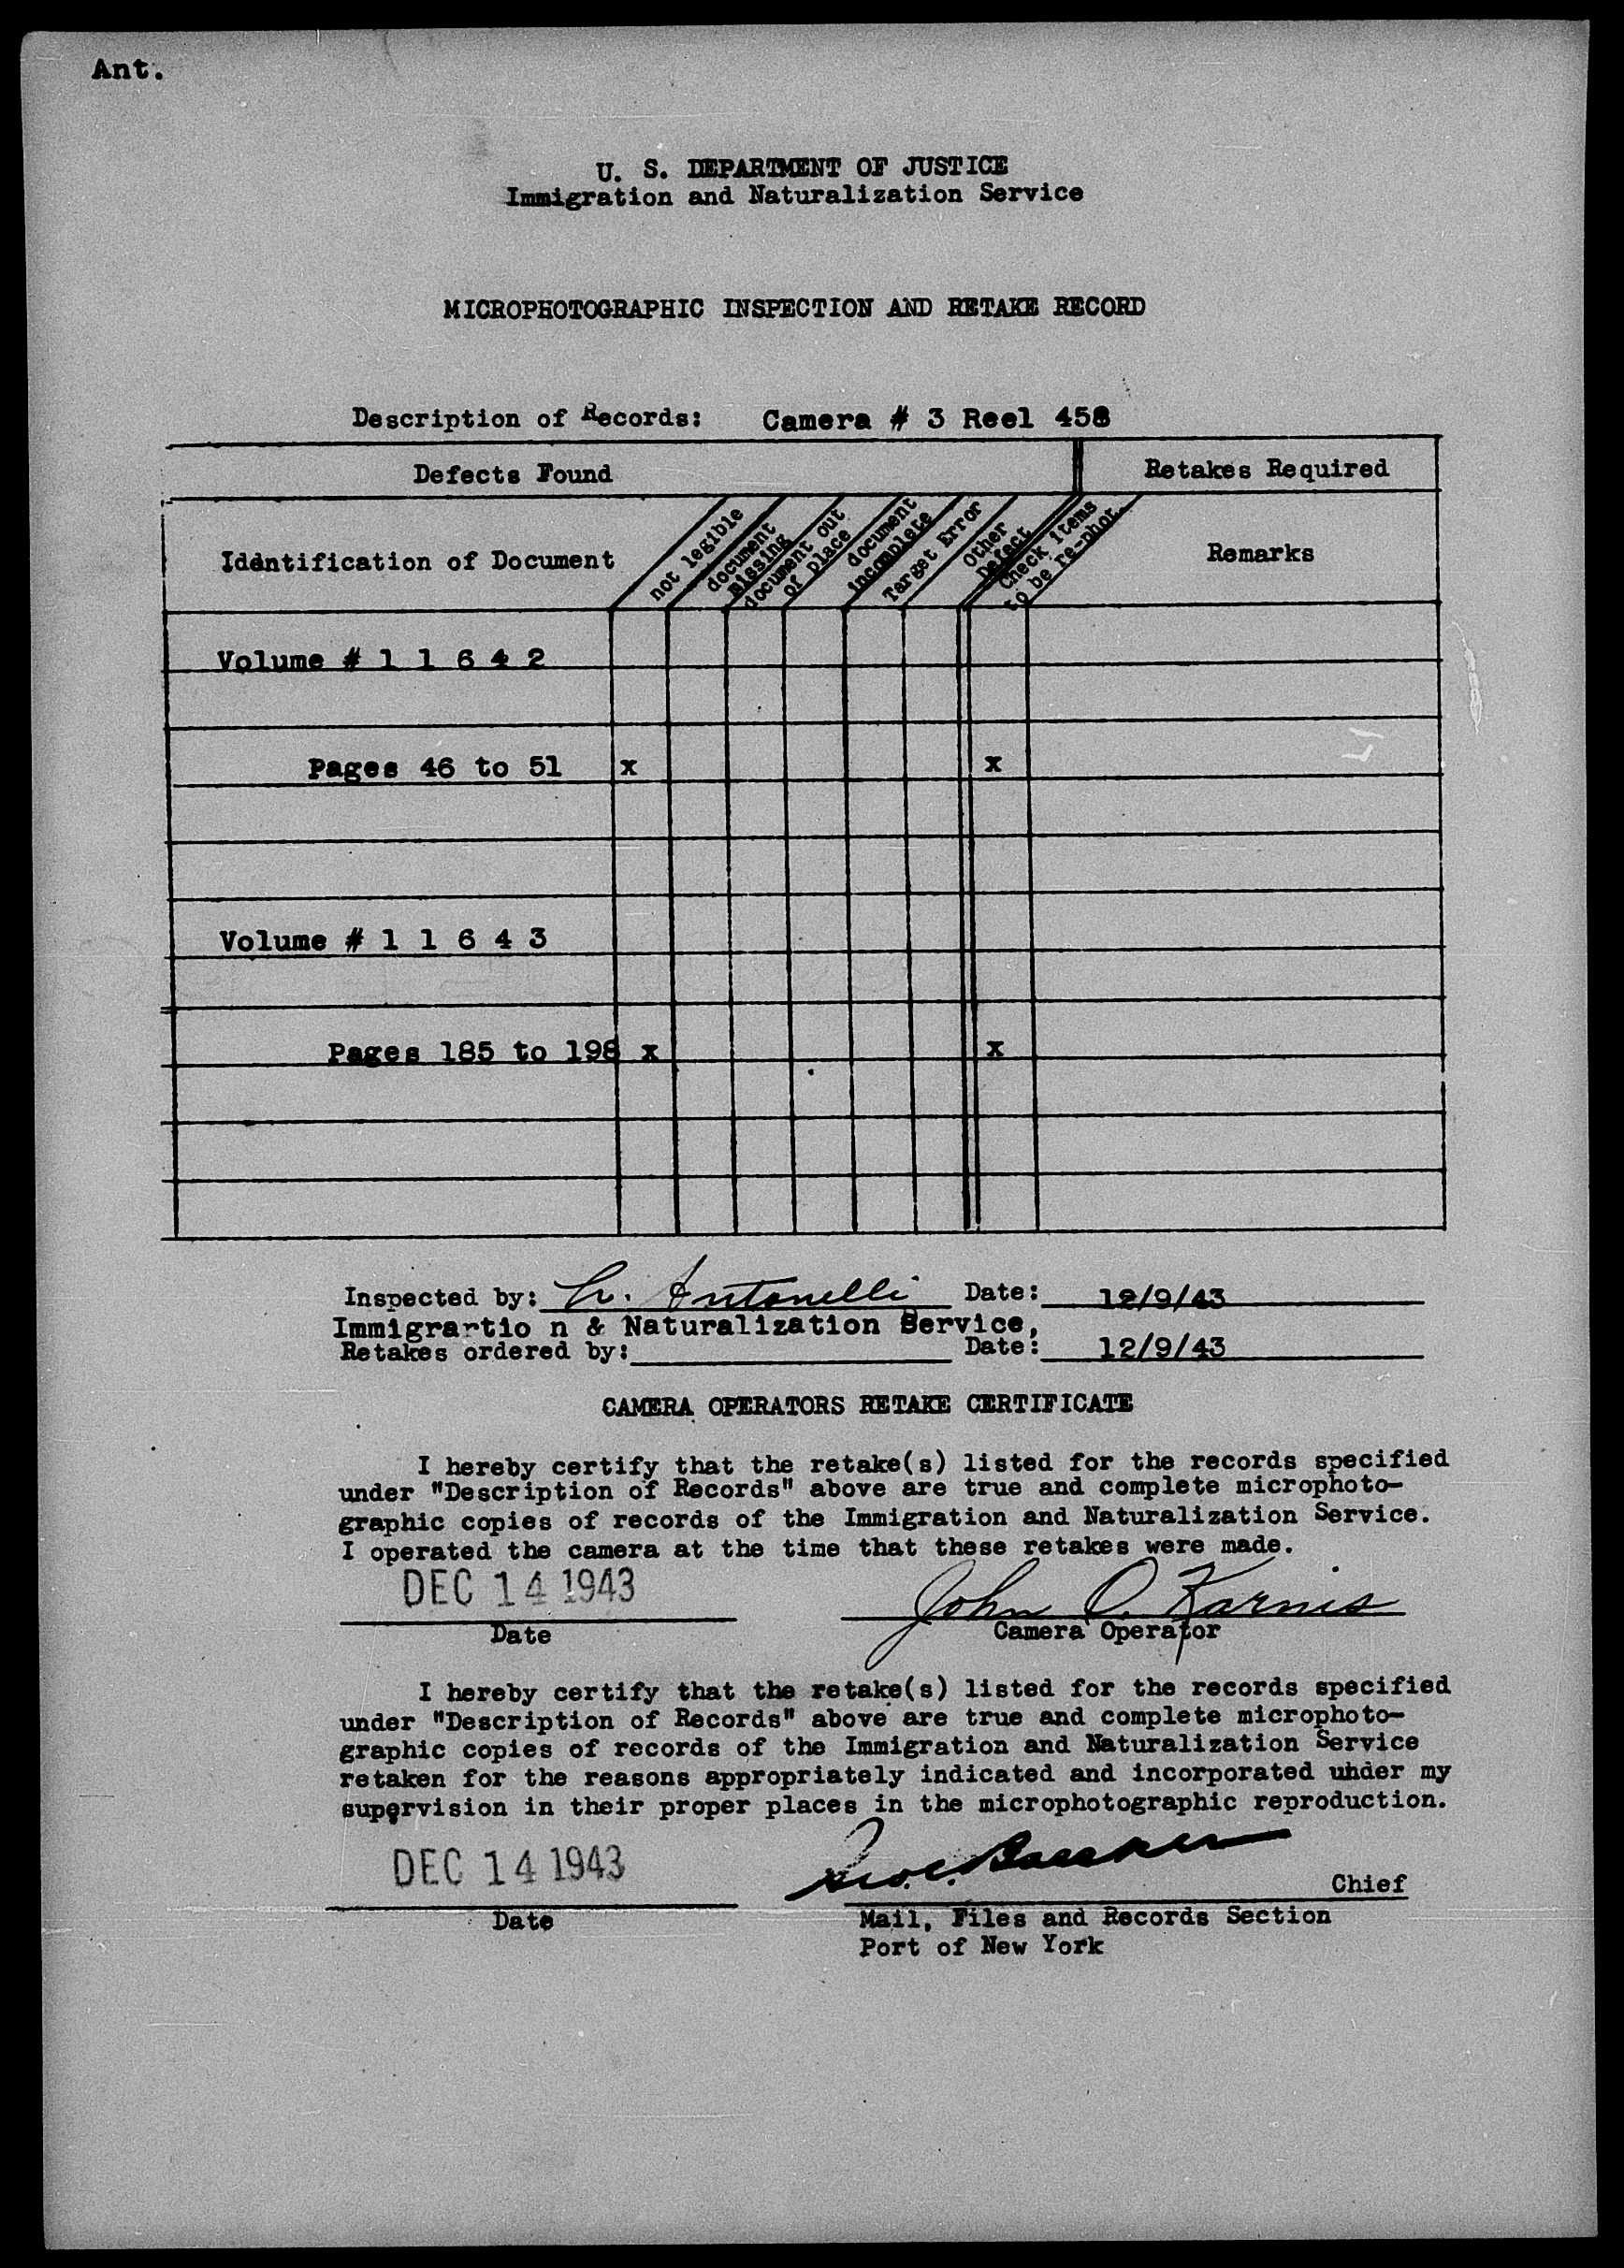 Ant.
U. S. DEPARTMENT OF JUSTICE
Immigration and Naturalization Service
MICROPHOTOGRAPHIC INSPECTION AND RETAKE RECORD
Description of Records: Camera # 3 Reel 458
Defects Found
Retakes Required
Identification of Document
not legible
document missing
document out of place
document incomplete
Target Error
Other Defect
Check items to be re-phot.
Remarks
Volume # 1 1 6 4 2
Pages 46 to 51 x x
Volume # 1 1 6 4 3
Pages 185 to 198 x x
Inspected by: Antonelli Date: 12/9/43
Immigrartio n & Naturalization Service,
Retakes ordered by: Date: 12/9/43
CAMERA OPERATORS RETAKE CERTIFICATE
I hereby certify that the retake(s) listed for the records specified
under "Description of Records" above are true and complete microphoto-
graphic copies of records of the Immigration and Naturalization Service.
I operated the camera at the time that these retakes were made.
DEC 14 1943 John O. Karnis
Date Camera Operator
I hereby certify that the retake(s) listed for the records specified
under "Description of Records" above are true and complete microphoto-
graphic copies of records of the Immigration and Naturalization Service
retaken for the reasons appropriately indicated and incorporated uhder my
supervision in their proper places in the microphotographic reproduction.
DEC 14 1943
Chief
Date Mail, Files and Records Section
Port of New York